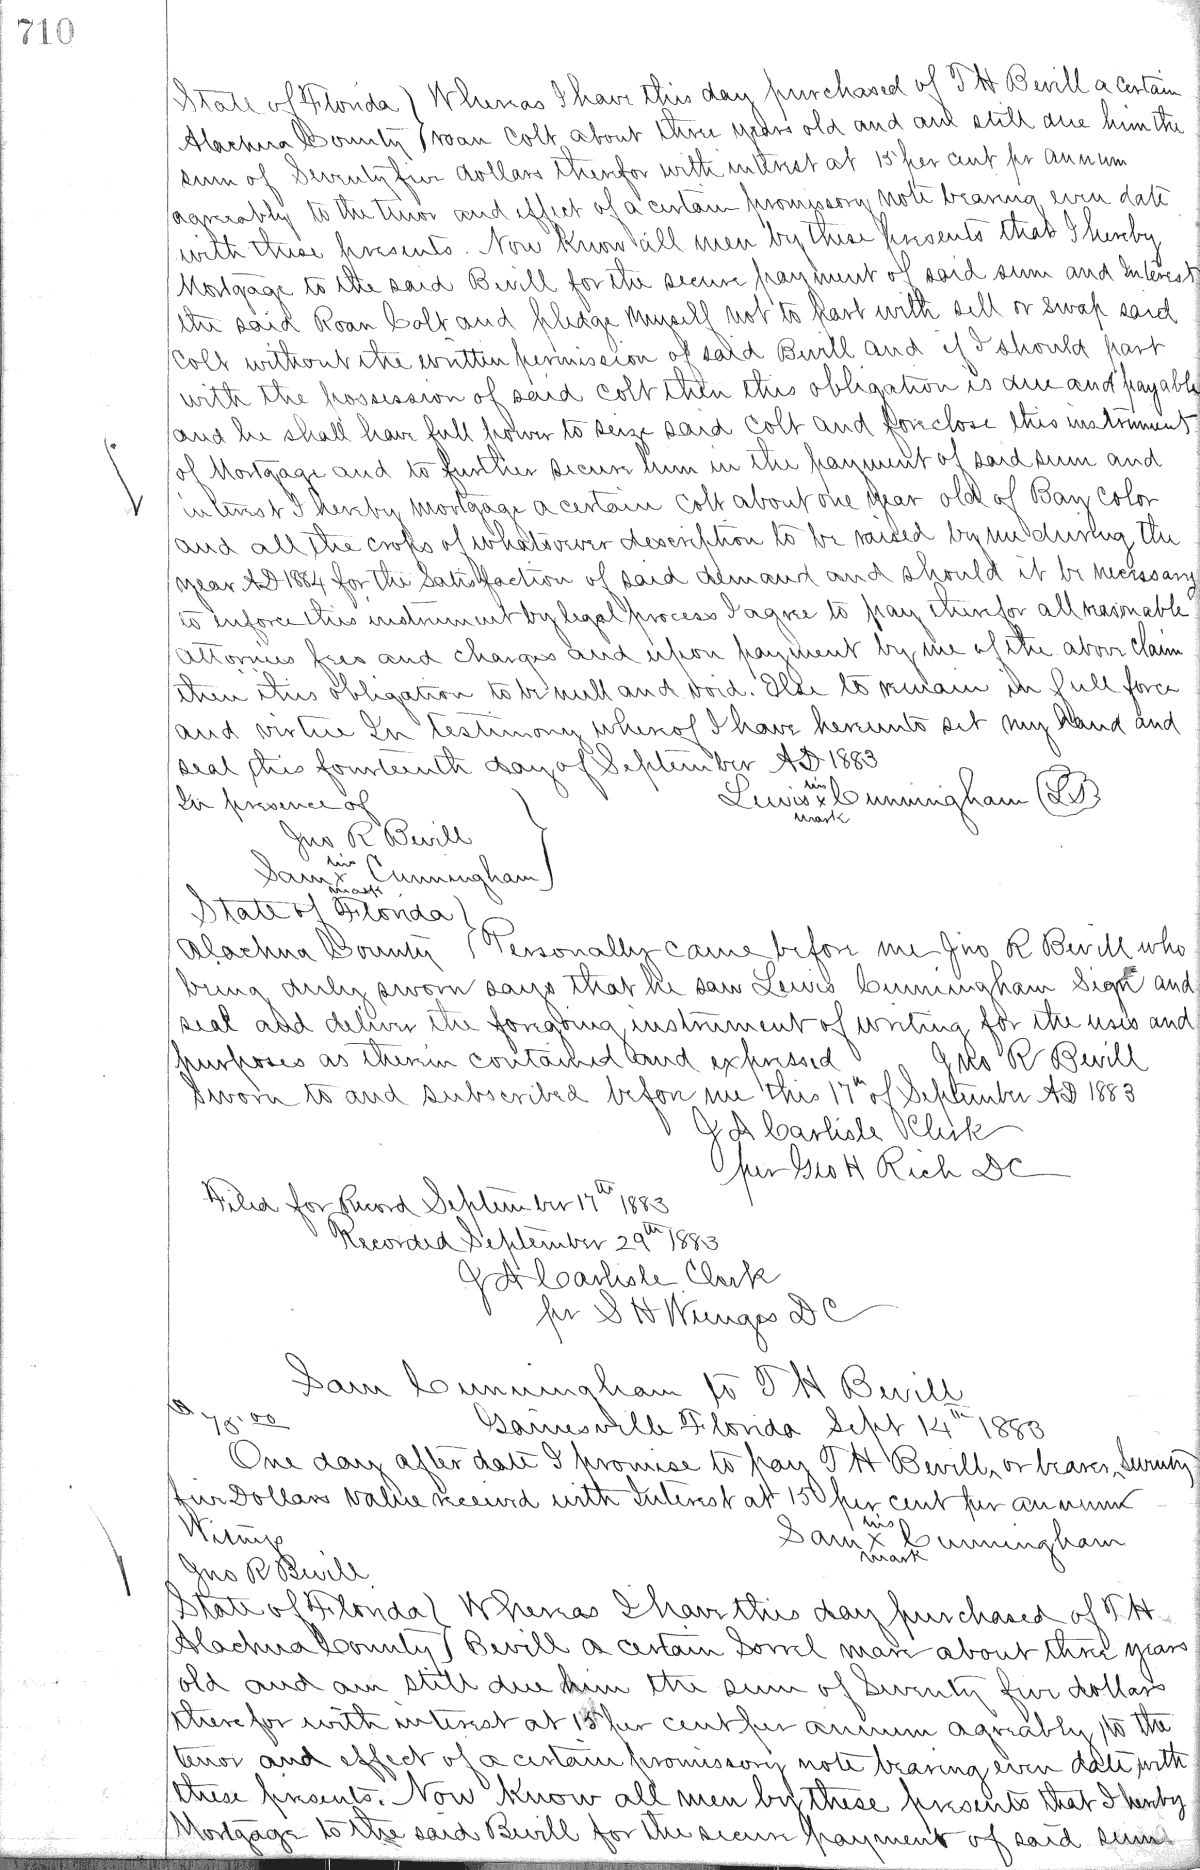 710
State of Florida ) Whereas I have this day purchased of T H Bevill a certain
Alachua County ) roan Colt about three years old and am still due him the
sum of Seventy five dollars therefor with interest at 15 per cent pr annum
agreeably to the tenor and effect of a certain promissory note bearing even date
with these presents. Now Know all men by these presents that I hereby
Mortgage to the said Bevill for the secure payment of said sum and Interest
the said Roan Colt and pledge myself not to part with sell or swap said
Colt without the written permission of said Bevill and if I should part
with the possession of said colt then this obligation is due and payable
and he shall have full power to seize said Colt and foreclose this instrument
of Mortgage and to further secure him in the payment of said sum and
interest I hereby mortgage a certain Colt about one year old of Bay color
and all the crops of whatsoever description to be raised by me during the
year AD 1884 for the Satisfaction of said demand and should it be necessary
to enforce this instrument by legal process I agree to pay therefor all reasonable
attornies fees and charges and upon payment by me of the above claim
then this obligation to be null and void. Else to remain in full force
and virtue In testimony whereof I have hereunto set my hand and
seal this fourteenth day of September AD 1883
In presence of
Lewis his x mark Cunningham (LS)
Jno R Bevill
Sam his x mark Cunningham )
State of Florida )
Alachua County ( Personally came before me Jno R Bevill who
being duly sworn says that he saw Lewis Cunningham Sign and
seal and deliver the foregoing instrument of writing for the uses and
purposes as therein contained and expressed Jno R Bevill
Sworn to and subscribed before me this 17th of September AD 1883
J A Carlisle Clerk
per Geo H Rich DC
Filed for Record September 17th 1883
Recorded September 29th 1883
J A Carlisle Clerk
pr S H Wienges DC
Sam Cunningham to T H Bevill
$75.00 Gainesville Florida Sept 14th 1883
One day after date I promise to pay T H Bevill, or bearer, Seventy
five Dollars value received with Interest at 15 per cent per annum
Witness
Sam his x mark Cunningham
Jno R Bevill
State of Florida ( Whereas I have this day purchased of T H
Alachua County ) Bevill a certain Sorrel mare about three years
old and am still due him the sum of Seventy five dollars
therefor with interest at 15 per cent per annum agreably to the
tenor and effect of a certain promissory note bearing even date with
these presents. Now Know all men by these presents that I hereby
Mortgage to the said Bevill for the secure payment of said sum